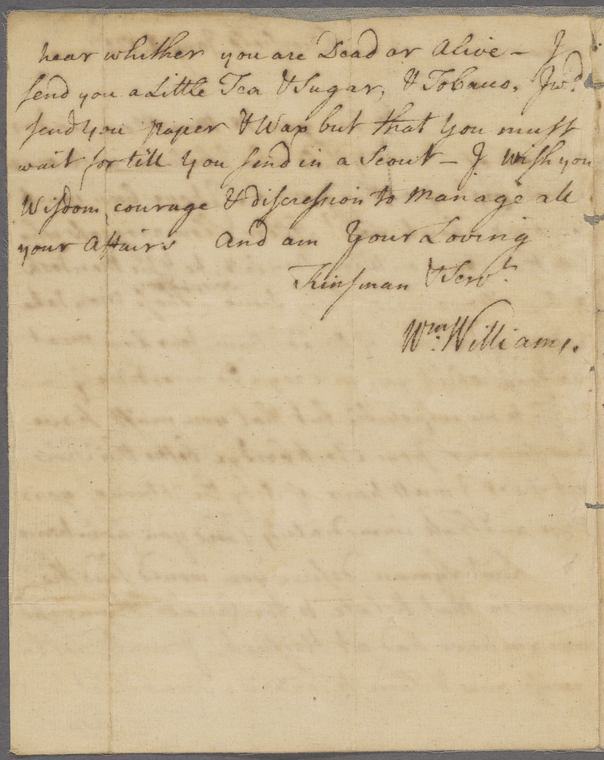 hear whither you are Dead or Alive – I
send you a Little Tea & Sugar, & Tobacco, I wd
send you paper & Wax but that you must
wait for till you send in a Scout – I Wish you
Wisdom, courage & discression to manage all
your Affairs And am Your Loving
Kinsman & Servt.
Wm. Williams.